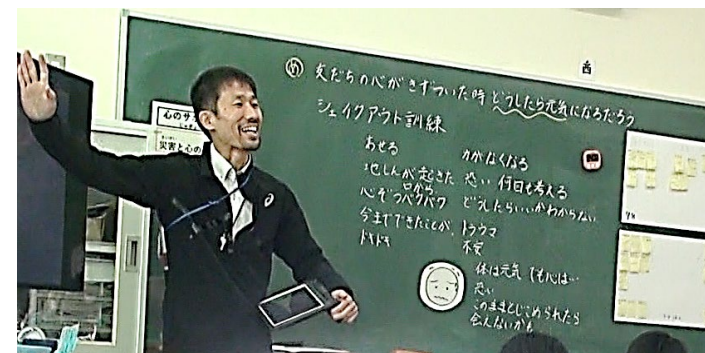 西
め 友だちの心がきずついた時どうしたら元気になるだろう
シェイクアウト訓練
心のサ
災害と心の
あせる
地しんが起きた
口から
心ぞうバクバク
今までできたことが、
ドキドキ
力がなくなる
恐い 何回も考える
どうしたらいいかわからない
トラウマ
不安
体は元気 でも心は…
恐い
このままとじこめられたら
会えないかも